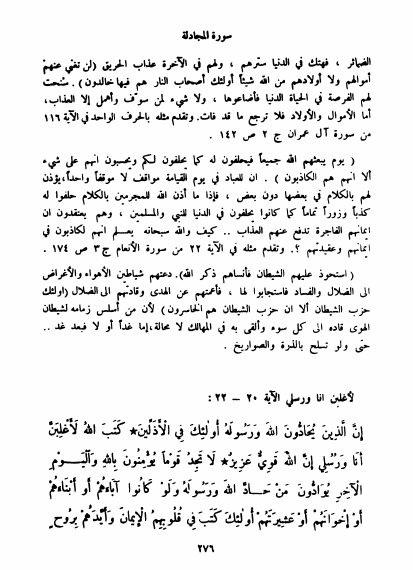 سورة المجادلة
الضمائر ، فهتك في الدنيا سترهم ، ولهم في الآخرة عذاب الحريق (لن تغني عنهم
أموالهم ولا أولادهم من الله شيئاً أولئك أصحاب النار هم فيها خالدون) . سنحت
لهم الفرصة في الحياة الدنيا فأضاعوها ، ولا شيء لمن سوّف وأهمل إلا العذاب،
أما الأموال والأولاد فلا ترجع ما قد فات. وتقدم مثله بالحرف الواحد في الآية ١١٦
من سورة آل عمران ج ٢ ص ١٤٢ .
( يوم يبعثهم الله جميعاً فيحلفون له كما يحلفون لكم ويحسبون انهم على شيء
ألا انهم هم الكاذبون ) . ان للعباد في يوم القيامة مواقف لا موقفاً واحداً، يؤذن
لهم بالكلام في بعضها دون بعض ، فإذا ما أذن الله للمجرمين بالكلام حلفوا له
كذباً وزوراً تماماً كما كانوا يحلفون في الدنيا للنبي والمسلمين ، وهم يعتقدون ان
إيمانهم الفاجرة تدفع عنهم العذاب .. كيف والله سبحانه يعلم انهم لكاذبون في
إيمانهم وعقيدتهم ؟. وتقدم مثله في الآية ٢٢ من سورة الأنعام ج ٣ ص ١٧٤ .
( استحوذ عليهم الشيطان فأنساهم ذكر الله). دعتهم شياطين الأهواء والأغراض
الى الضلال والفساد فاستجابوا لها ، فأعمتهم عن الهدى وقادتهم الى الضلال (اولئك
حزب الشيطان ألا ان حزب الشيطان هم الخاسرون) لأن من أسلس زمامه لشيطان
الهوى قاده الى كل سوء وألقى به في المهالك لا محالة، إما غداً أو لا فبعد غد ..
حتى ولو تسلح بالذرة والصواريخ .
لأغلبن انا ورسلي الآية ٢٠ – ٢٢ :
إِنَّ الَّذِينَ يُحَادُّونَ اللهَ وَرَسُولَهُ أُولَئِكَ فِي الْأَذَلِّينَ * كَتَبَ اللهُ لَأَغْلِبَنَّ
أَنَا وَرُسُلِي إِنَّ اللهَ قَوِيٌّ عَزِيزٌ * لَا تَجِدُ قَوْماً يُؤْمِنُونَ بِاللهِ وَالْيَوْمِ
الْآخِرِ يُوَادُّونَ مَنْ حَادَّ اللهَ وَرَسُولَهُ وَلَوْ كَانُوا آبَاءَهُمْ أَوْ أَبْنَاءَهُمْ
أَوْ إِخْوَانَهُمْ أَوْ عَشِيرَتَهُمْ أُولَئِكَ كَتَبَ فِي قُلُوبِهِمُ الْإِيمَانَ وَأَيَّدَهُمْ بِرُوحٍ
٢٧٦